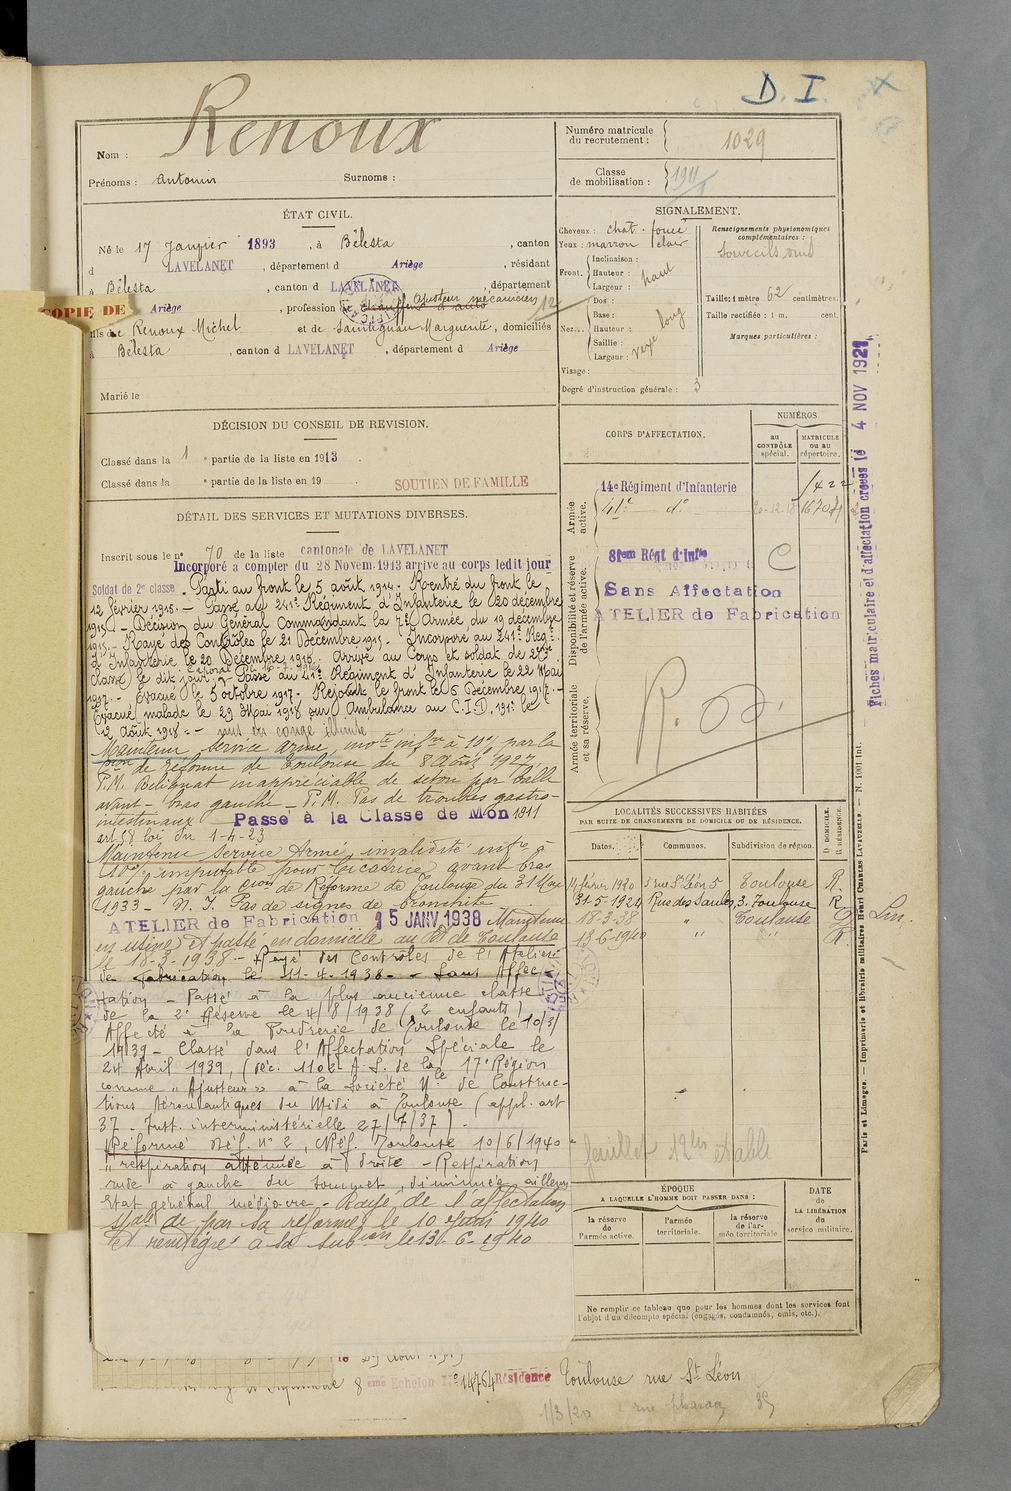 D. I.
COPIE DE
Nom : Renoux
Prénoms : Antonin Surnoms :
Numéro matricule du recrutement : 1029
Classe de mobilisation : 1911
ÉTAT CIVIL.
Né le 17 Janvier 1893, à Bélesta, canton
d LAVELANET, département d Ariège, résidant
à Bélesta, canton d LAVELANET, département
Ariège, profession de chauffeur d'auto Ajusteur mécanicien
fils de Renoux Michel et de Marguerite, domiciliés
à Bélesta, canton d LAVELANET, département d Ariège
Marié le
SIGNALEMENT.
Cheveux : chât. foncé
Yeux : marron clair
Front. Inclinaison :
Hauteur : haut
Largeur :
Nez... Dos :
Base :
Hauteur : long
Saillie :
Largeur :
Visage :
Degré d'instruction générale : 3
Renseignements physionomiques complémentaires :
Taille : 1 mètre 62 centimètres.
Taille rectifiée : 1 m. cent.
Marques particulières :
DÉCISION DU CONSEIL DE REVISION.
Classé dans la 1 e partie de la liste en 1913
Classé dans la e partie de la liste en 19
SOUTIEN DE FAMILLE
DÉTAIL DES SERVICES ET MUTATIONS DIVERSES.
Inscrit sous le n° 70 de la liste cantonale de LAVELANET
Incorporé à compter du 28 Novem. 1913 arrivé au corps ledit jour
Soldat de 2e classe. Parti au front le 5 août 1914. Rentré du front le
12 février 1915. - Passé au 241e Régiment d'Infanterie le 20 décembre
1915. - Décision du Général Commandant la 7e Armée du 19 décembre
1915. - Rayé des Contrôles le 21 Décembre 1915. - Incorporé au 241e Regt
d'Infanterie le 20 Décembre 1915. Arrivé au Corps et soldat de 2eme
classe le dit jour. Passé au 41e Régiment d'Infanterie le 22 Mai
1917. - Évacué le 5 octobre 1917. Rejoint le front le 6 Décembre 1917. -
Évacué malade le 29 Mai 1918 sur Ambulance au C.I.D. 131e le
12 Août 1918. - mis en congé illimité
Maintenu service armé, inv.té inf.re à 10% par la
Con de réforme de Toulouse du 8 Août 1927.
P.M. Reliquat inappréciable de séton par balle
avant-bras gauche _ P.M. Pas de troubles gastro-
intestinaux Passé à la Classe de Mon 1911
art 58 loi du 1-4-23
Maintenu Service Armé, invalidité infre à
10% imputable pour cicatrice avant bras
gauche par la Con de Réforme de Toulouse du 31 Mai
1933 - N.I. Pas de signes de bronchite
ATELIER de Fabrication 15 JANV 1938 Maintenu
en usine et passé en domicile au Bau de Toulouse
le 18-3-1938 - Rayé des Contrôles de l'Atelier
de Fabrication le 11-4-1938 - Sans Affec-
tation - Passé à la plus ancienne classe
de la 2e Réserve le 4/8/1938 (2 enfants)
Affecté à la Poudrerie de Toulouse le 10/3/
1939 - Classé dans l'Affectation Spéciale le
24 Avril 1939, A.S. de la 17e Région
comme "Ajusteur" à la Société Nle de Construc-
tions Aéronautiques du Midi à Toulouse (appl. art
37 - Inst. interministérielle 27/7/37).
Réformé Déf. N° 2, CRéf. Toulouse 10/6/1940
"respiration atténuée à droite - Respiration
rude à gauche du sommet, diminuée ailleurs
état général médiocre - Rayé de l'affectation
spale de par sa réforme le 10 Juin 1940
et réintégré à la subon le 13-6-1940
CORPS D'AFFECTATION.
NUMÉROS
au CONTRÔLE spécial.
MATRICULE ou au répertoire.
Armée active.
14e Régiment d'Infanterie 1422
41e do 16708
Disponibilité et réserve de l'armée active.
81em Régt d'Infie C
Sans Affectation
ATELIER de Fabrication
Armée territoriale et sa réserve.
LOCALITÉS SUCCESSIVES HABITÉES
PAR SUITE DE CHANGEMENTS DE DOMICILE OU DE RÉSIDENCE.
Dates. Communes. Subdivision de région. D. DOMICILE. R. RÉSIDENCE.
14 février 1920 rue St Léon 5 Toulouse R.
31-5-1924 Rue des Saules, 3. Toulouse R.
18-3-38 " Toulouse D
13-6-1940 " " R.
feuillet 12
ÉPOQUE
A LAQUELLE L'HOMME DOIT PASSER DANS :
la réserve de l'armée active.
l'armée territoriale.
la réserve de l'armée territoriale
DATE de LA LIBÉRATION du service militaire.
Ne remplir ce tableau que pour les hommes dont les services font
l'objet d'un décompte spécial (engagés, condamnés, omis, etc.).
Fiches matriculaire et d'affectation créées le 4 NOV 1921
Paris et Limoges. — Imprimerie et librairie militaires Henri CHARLES-LAVAUZELLE. — N. 1001 int.
8 eme Echelon N° 14764 Résidence Toulouse rue St Léon
1/3/20 rue 35